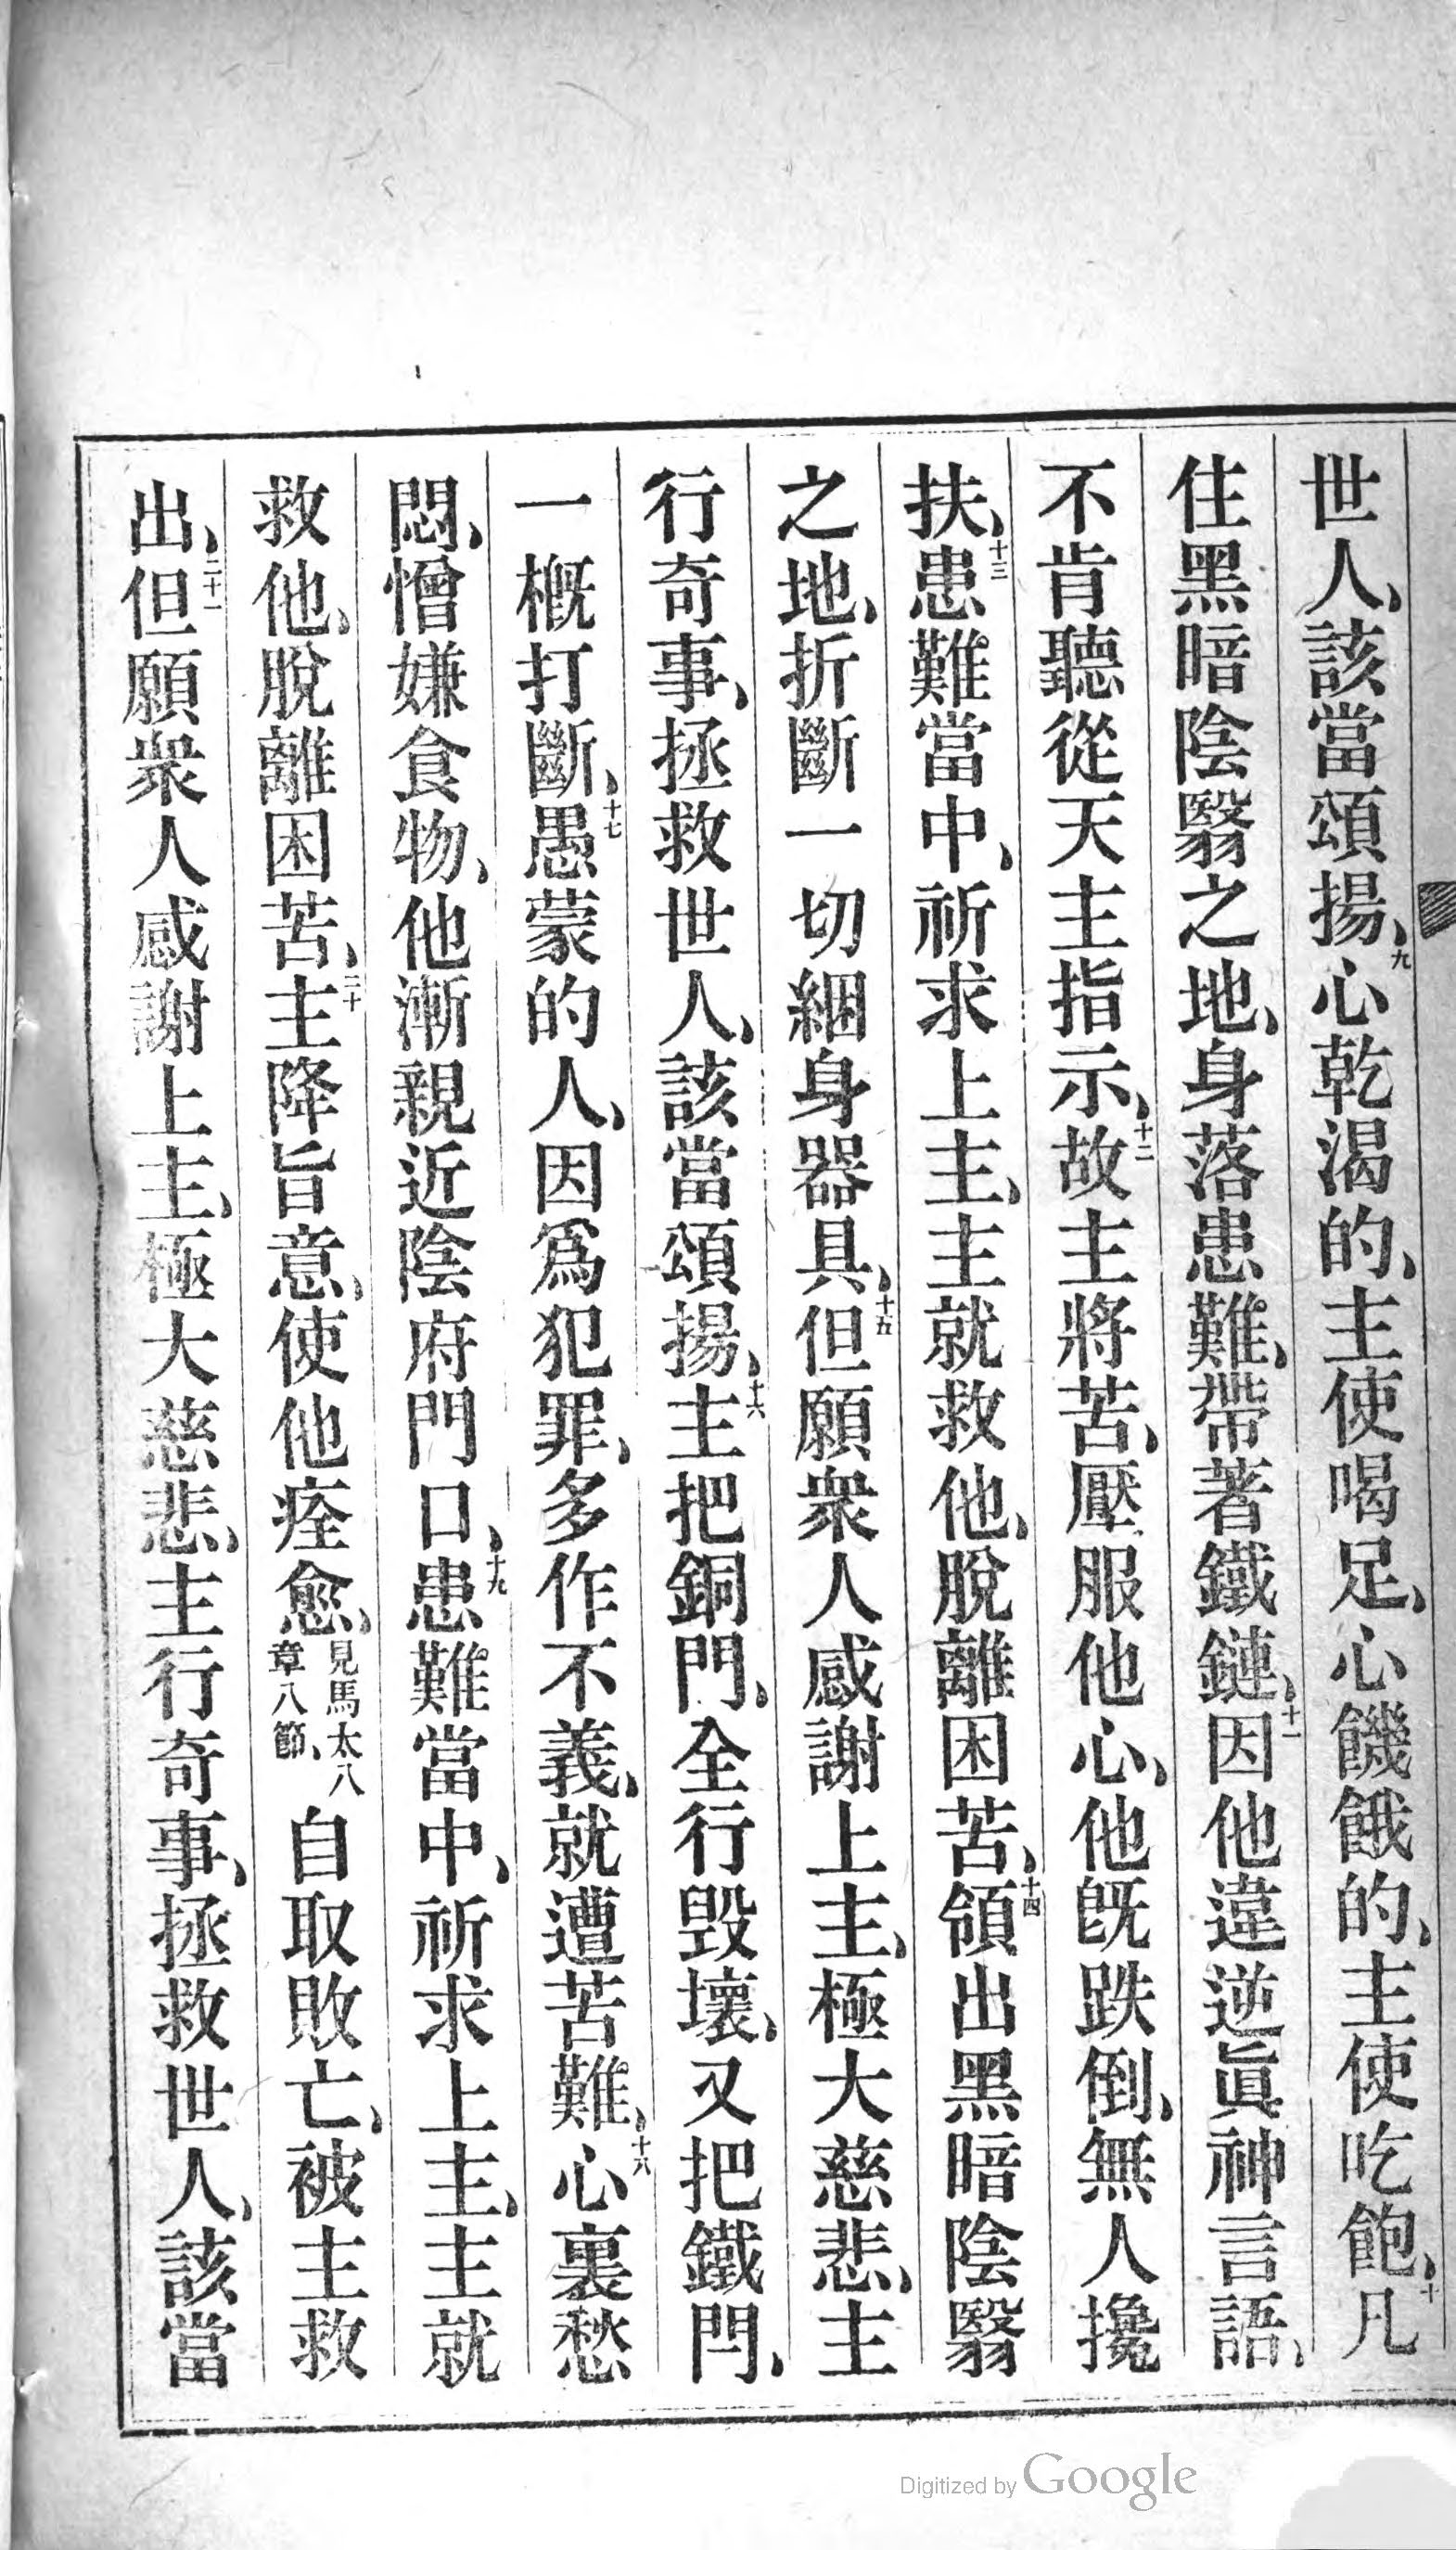 世人、該當頌揚、九心乾渴的、主使喝足、心饑餓的、主使吃飽、十凡
住黑暗陰翳之地、身落患難、帶著鐵鏈、十一因他違逆眞神言語、
不肯聽從天主指示、十二故主將苦、壓服他心、他旣跌倒、無人攙
扶、十三患難當中、祈求上主、主就救他、脫離困苦、十四領出黑暗陰翳
之地、折斷一切綑身器具、十五但願衆人感謝上主、極大慈悲、主
行奇事、拯救世人、該當頌揚、十六主把銅門、全行毀壞、又把鐵閂、
一概打斷、十七愚蒙的人、因爲犯罪、多作不義、就遭苦難、十八心裏愁
悶、憎嫌食物、他漸親近陰府門口、十九患難當中、祈求上主、主就
救他、脫離困苦、二十主降旨意、使他痊愈、見馬太八章八節、自取敗亡、被主救
出、二十一但願衆人感謝上主、極大慈悲、主行奇事、拯救世人、該當
Digitized by Google